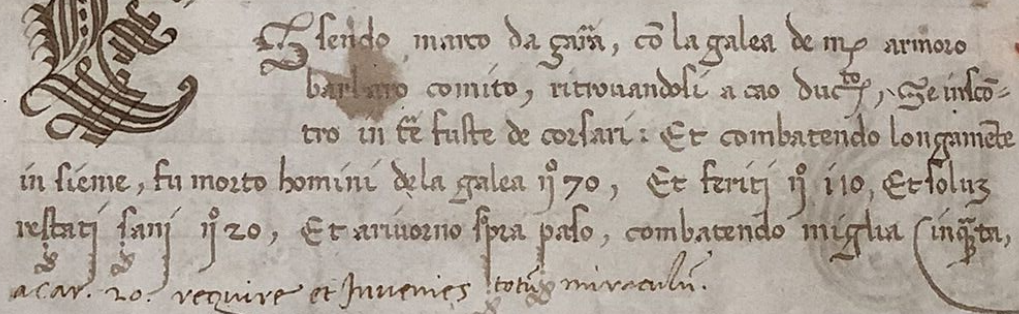 Essendo marco da zara, cō la galea de mß armoro
barbaro comito, ritrouandosi a cao duc.to, Se inscō-
tro in tre fuste de corsari: Et combatendo longamēte
in sieme, fu morto homini dela galea nº 70, Et feriti nº 110, Et solum
restati sani nº 20, Et ariuorno sopra paso, combatendo miglia cinquāta,
a car. 20. require et Inuenies totū miraculū.